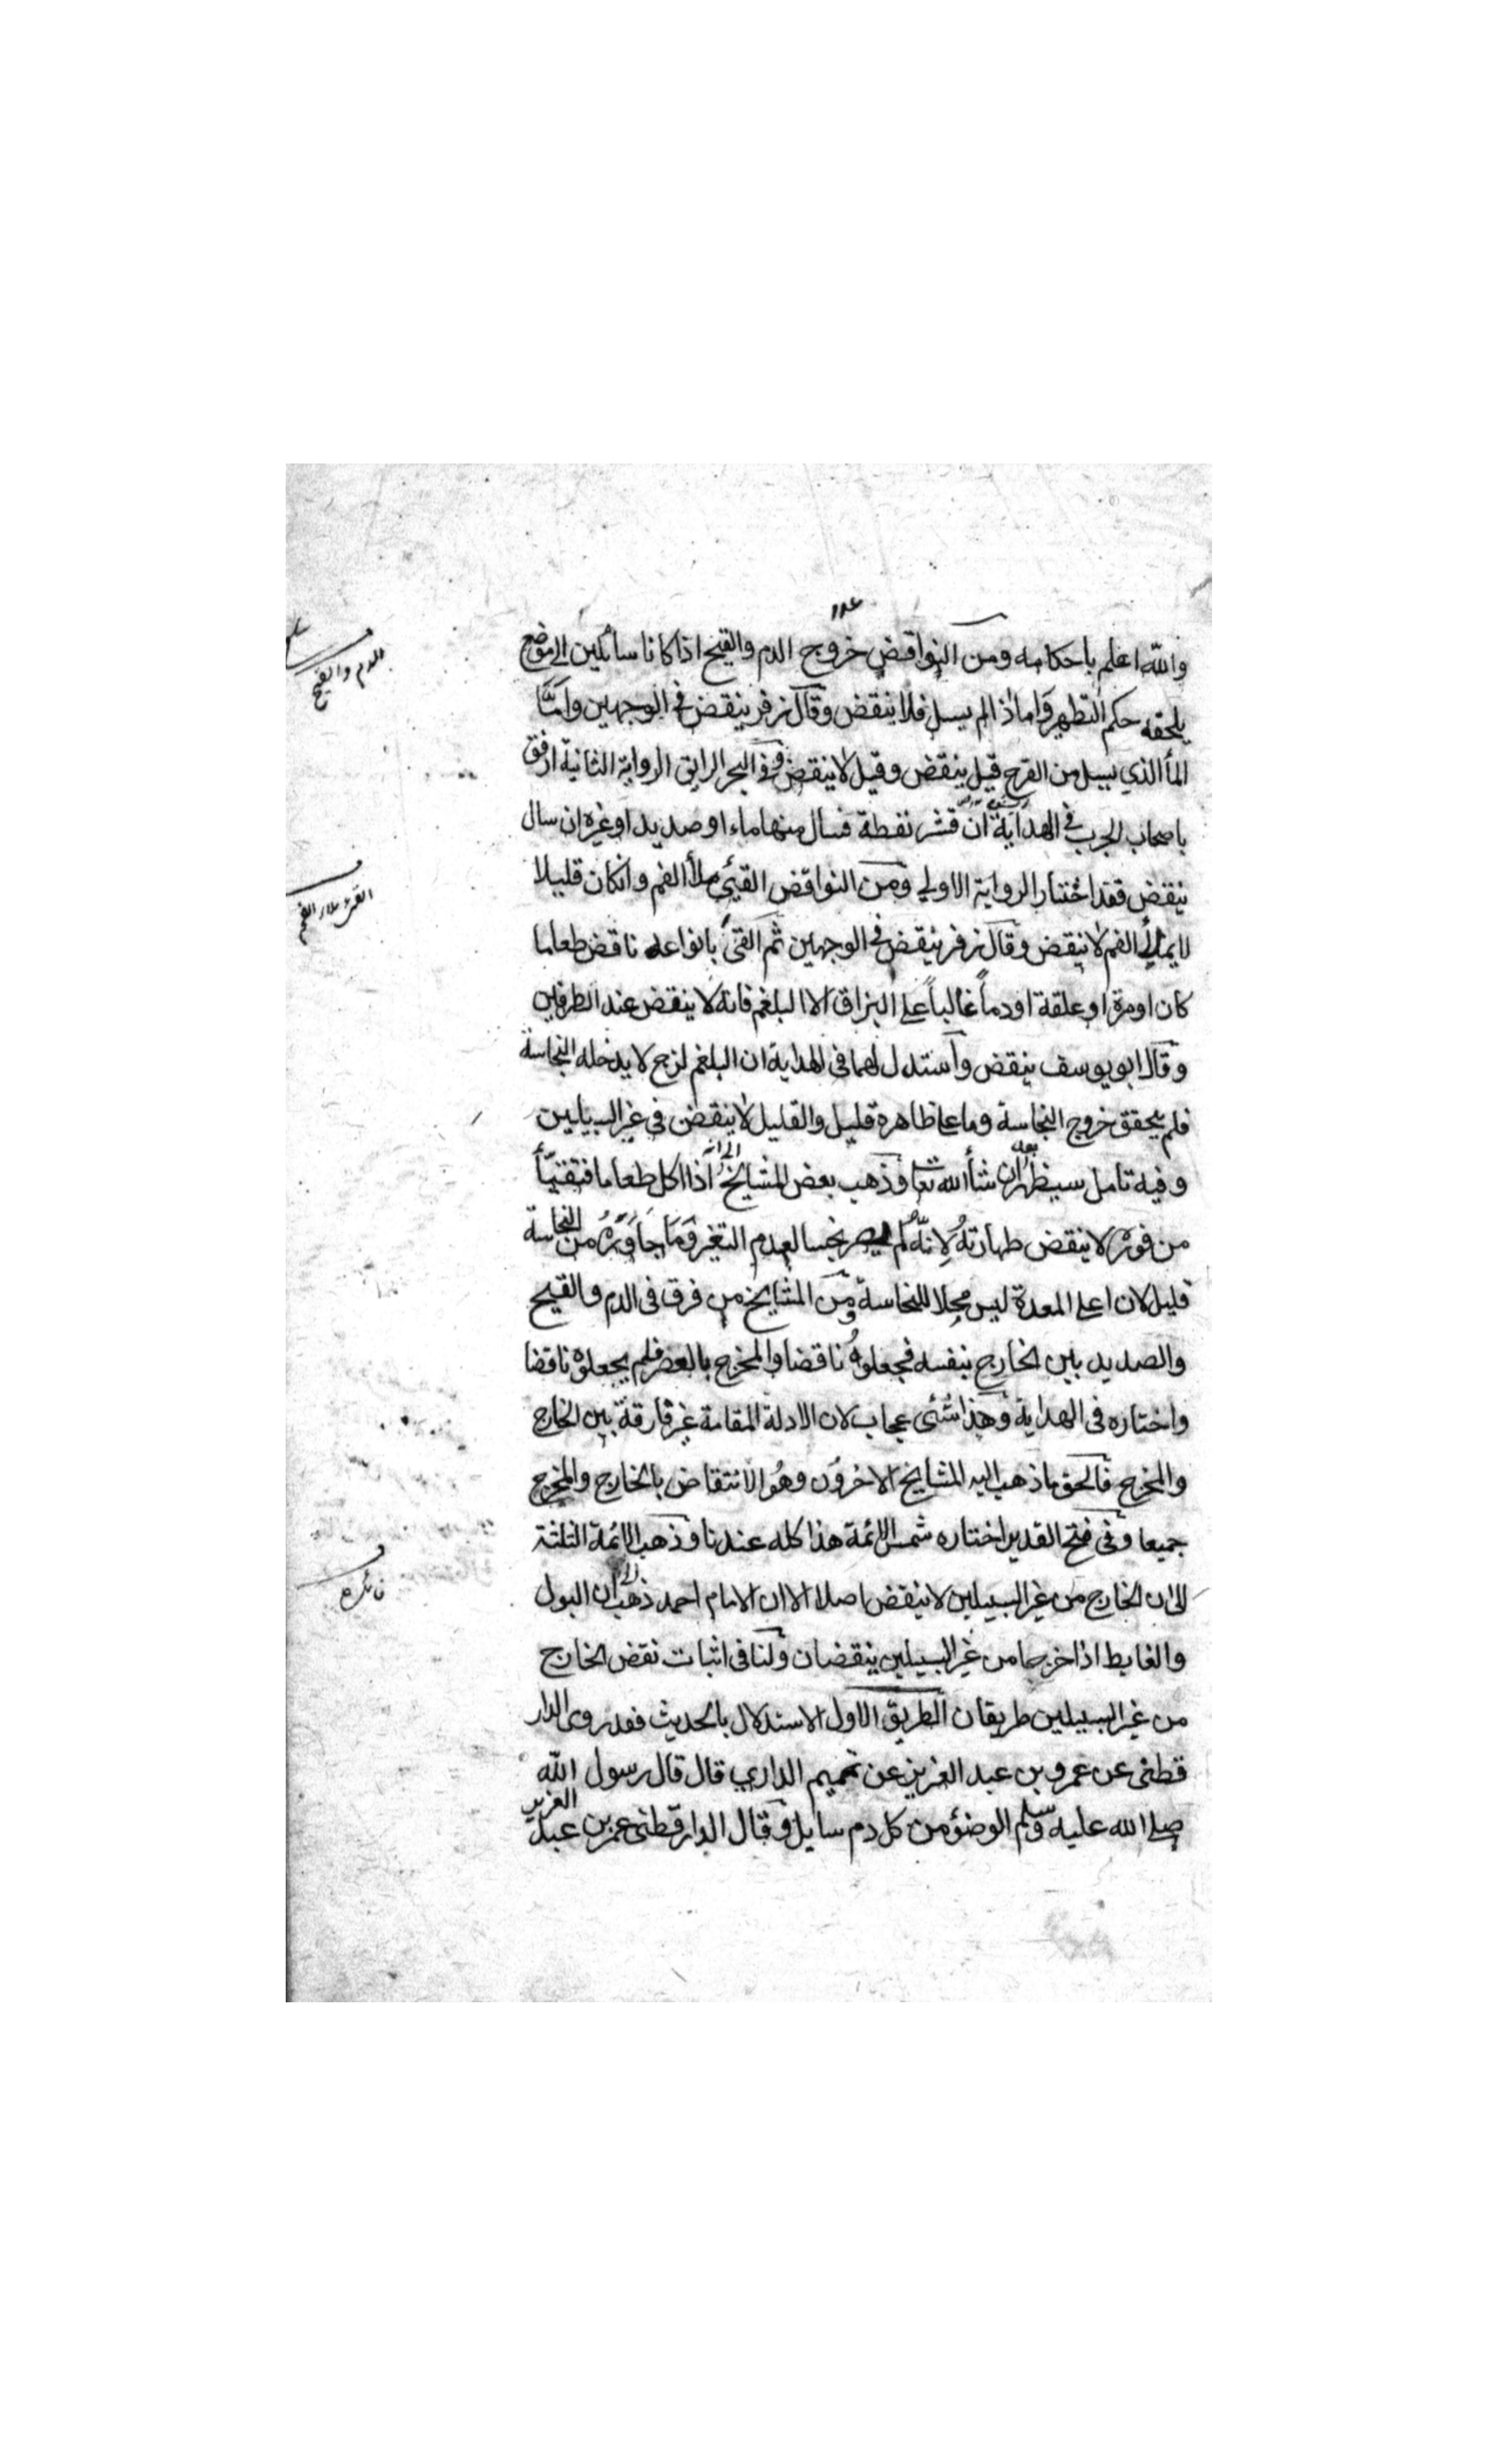 والله اعلم باحكامه ومن النواقض خروج الدم والقيح اذا كانا سائلين الى موضع
يلحقه حكم التطهير واما اذا لم يسل فلا ينقض وقال زفر ينقض فى الوجهين واما
المأ الذي يسيل من القرح قيل ينقض وقيل لا ينقض وفى البحر الرايق الرواية الثانية ارفق
باصحاب الجرب فى الهداية ان قشر نفطة فسال منها ماء او صديد او غيره ان سال
ينقض فقد اختار الرواية الاولي ومن النواقض القيئ ملأ الفم وانكان قليلا
لا يملأ الفم لا ينقض وقال زفر ينقض فى الوجهين ثم القئ بانواعه ناقض طعاما
كان او مرة او علقة او دماً غالباً على البزاق الا البلغم فانه لا ينقض عند الطرفين
وقال ابو يوسف ينقض واستدل لهما فى الهداية ان البلغم لزج لا يدخله النجاسة
فلم يتحقق خروج النجاسة وما على ظاهره قليل والقليل لا ينقض فى غير السبيلين
وفيه تامل سيظهر ان شأ الله تعا وذهب بعض المشايخ الى انه اذا اكل طعاما فتقيّأ
من فوره لا ينقض طهارتهُ لانهُ لم يصر نجسا لعدم التغير وَمَا جَاوَرَهُ من النجاسة
قليل لان اعلى المعدة ليس محلا للنجاسة ومن المشايخ من فرق فى الدم والقيح
والصديد بين الخارج بنفسه فجعلوهُ ناقضا والمخرج بالعصر فلم يجعلوه ناقضا
واختاره فى الهداية وهذا شئى عجاب لان الادلة المقامة غير فارقة بين الخارج
والمخرج فالحق ما ذهب اليه المشايخ الاخرون وهُو الانتقاض بالخارج والمخرج
جميعا وفى فتح القدير اختاره شمس الائمة هذا كله عندنا وذهب الائمة الثلثة
الى ان الخارج من غير السبيلين لا ينقض اصلا الا ان الامام احمد ذهب الى ان البول
والغايط اذا خرجا من غير السبيلين ينقضان ولنا فى اثبات نقض الخارج
من غير السبيلين طريقان الطريق الاول الاستدلال بالحديث فقد روى الدار
قطنى عن عمرو بن عبد العزيز عن تميم الداري قال قال رسول الله
صلى الله عليه وسلم الوضؤ من كل دم سايل وقال الدارقطنى عمر بن عبد العزيز
الدم والقيح
القئ ملأ الفم
فائده